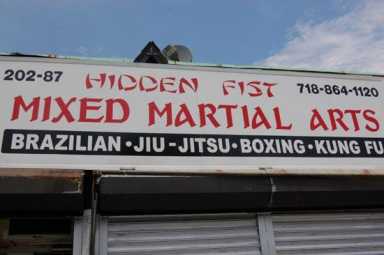 202-87 HIDDEN FIST 718-864-1120
MIXED MARTIAL ARTS
BRAZILIAN • JIU-JITSU • BOXING • KUNG FU